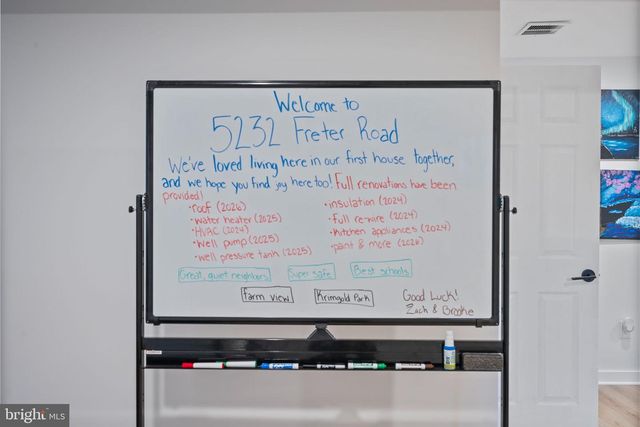 Welcome to
5232 Freter Road
We've loved living here in our first house together,
and we hope you find joy here too! Full renovations have been
provided!
• roof (2026)
• water heater (2025)
• HVAC (2024)
• Well pump (2025)
• well pressure tank (2025)
• insulation (2024)
• full re-wire (2024)
• Kitchen appliances (2024)
• paint & more (2026)
Great, quiet neighbors
Super safe
Best schools
farm view
Krimgold Park
Good Luck!
Zach & Brooke
bright MLS